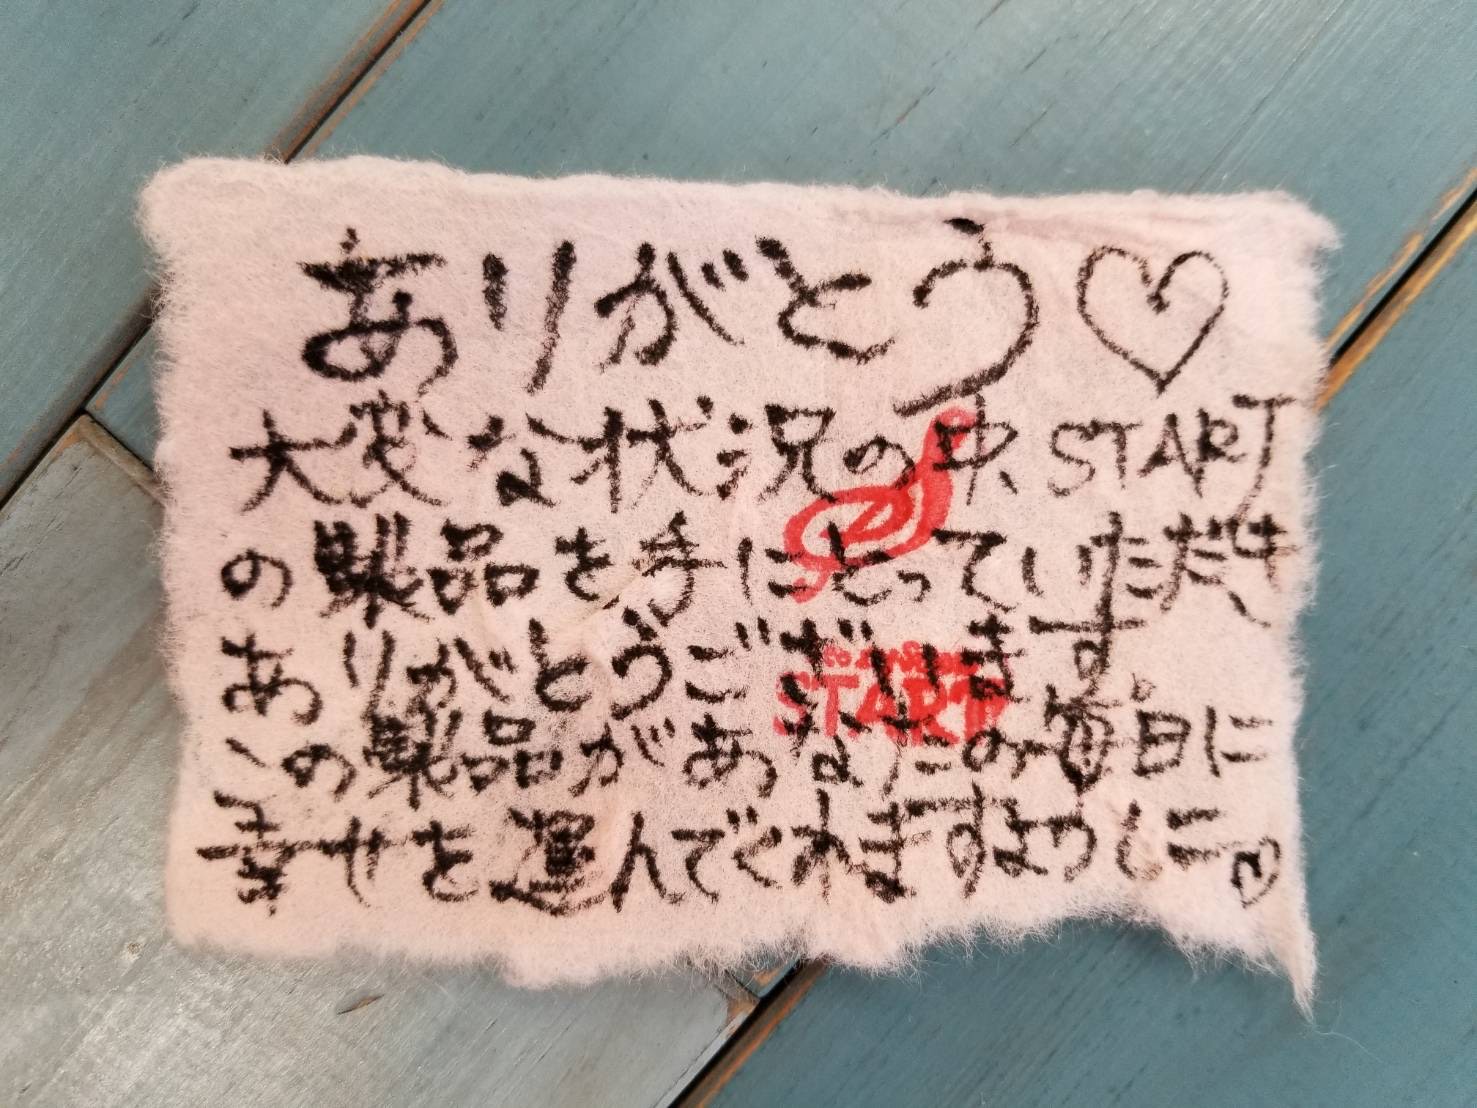 ありがとう♡
大変な状況の中、START
の製品を手にとっていただき
ありがとうございます。
この製品があなたの毎日に
幸せを運んでくれますように
START